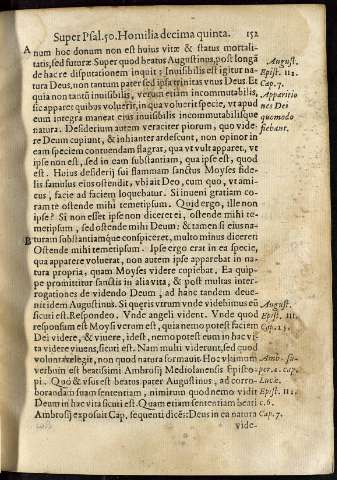 Super Psal. 50. Homilia decima quinta. 152
A num hoc donum non est huius vitæ & status mortali-
tatis, sed futuræ. Super quod beatus Augustinus, post longã
de hac re disputationem inquit: Inuisibilis est igitur na-
tura Deus, non tantum pater sed ipsa trinitas vnus Deus. Et
quia non tantũ inuisibilis, verum etiam incommutabilis,
sic apparet quibus voluerit, in qua voluerit specie, vt apud
eum integra maneat eius inuisibilis incommutabilisque
natura. Desiderium autem veraciter piorum, quo vide-
re Deum cupiunt, & inhianter ardescunt, non opinor in
eam speciem contuendam flagrat, qua vt vult apparet, vt
ipse non est, sed in eam substantiam, qua ipse est, quod
est. Huius desiderij sui flammam sanctus Moyses fide-
lis famulus eius ostendit, vbi ait Deo, cum quo, vt ami-
cus, facie ad faciem loquebatur. Si inueni gratiam co-
ram te ostende mihi temetipsum. Quid ergo, ille non
ipse? Si non esset ipse non diceret ei, ostende mihi te-
metipsum, sed ostende mihi Deum: & tamen si eius na-
B turam substantiamque conspiceret, multo minus diceret
Ostende mihi temetipsum. Ipse ergo erat in ea specie,
qua apparere voluerat, non autem ipse apparebat in na-
tura propria, quam Moyses videre cupiebat. Ea quip-
pe promittitur sanctis in alia vita, & post multas inter-
rogationes de videndo Deum, ad hanc tandem deue-
nit idem Augustinus. Si quæris vtrum vnde videbimus ei
sicuti est. Respondeo. Vnde angeli vident. Vnde quod
responsum est Moysi verum est, quia nemo potest faciem
Dei videre, & viuere, idest, nemo potest eum in hac vi-
ta videre viuens, sicuti est. Nam multi viderunt, sed quod
voluntas elegit, non quod natura formauit. Hoc vltimum
verbum est beatissimi Ambrosij Mediolanensis Episto-
pi. Quo & vsus est beatus pater Augustinus, ad corro-
borandam suam sententiam, nimirum quod nemo vidit
Deum in hac vita sicuti est. Quam etiam sententiam beati
Ambrosij exposuit Cap. sequenti dicẽs: Deus in ea natura
vide-
August.
Epist. 112.
Cap. 7.
Apparitio
nes Dei
quomodo
fiebant.
August.
Epist. 111.
Cap. 15.
Amb. su-
per .c. cap.
Lucæ.
Epist. 112.
c. 6.
Cap. 7.